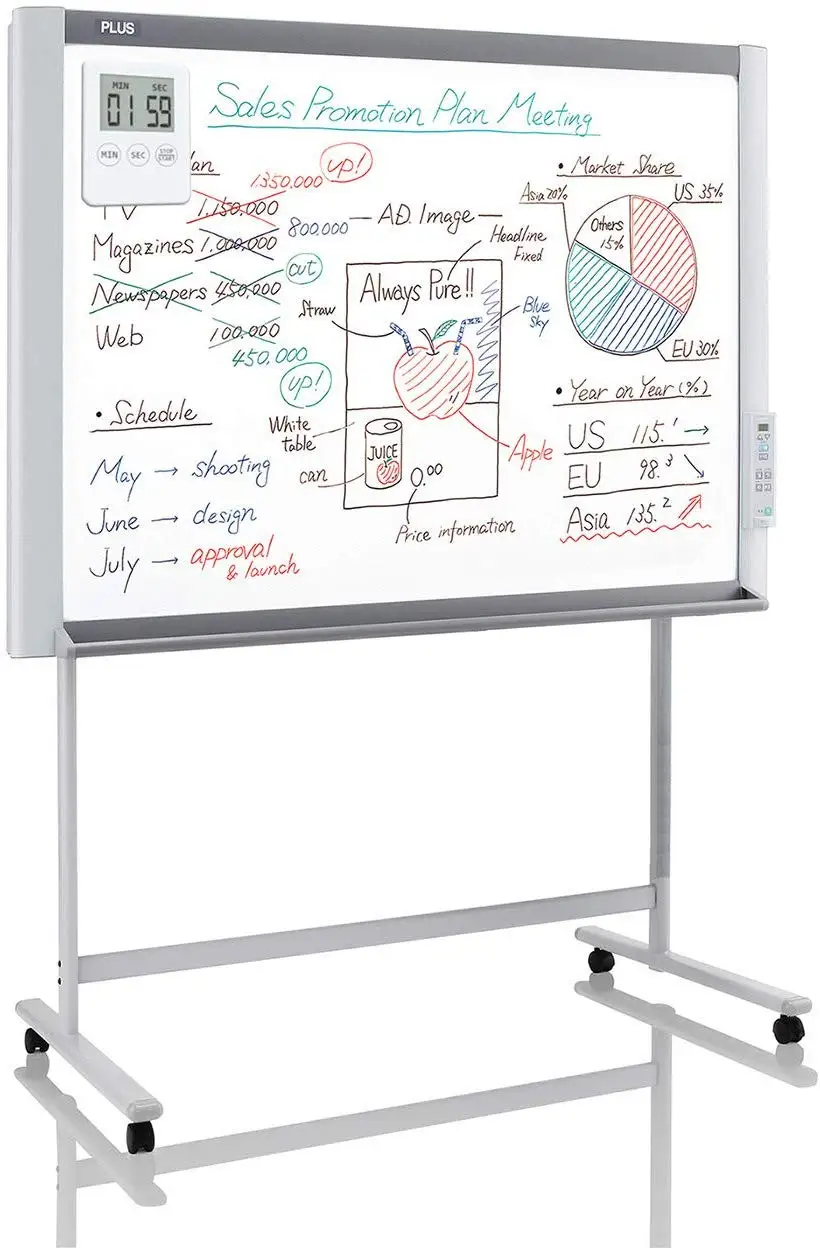 PLUS
MIN SEC
01 59
MIN SEC STOP START
Sales Promotion Plan Meeting
1350.000 up!
TV 1.150,000
Magazines 1.000,000 800,000
Newspapers 450,000 cut
Web 100,000
450,000
up!
• Schedule
May → shooting
June → design
July → approval
& launch
— AD. Image —
Headline
Fixed
Always Pure!!
Straw
Blue
Sky
White
table
can
JUICE
0.00
Apple
Price information
• Market Share
Asia 20%
US 35%
Others
15%
EU 30%
• Year on Year (%)
US 115.1 →
EU 98.3
Asia 135.2